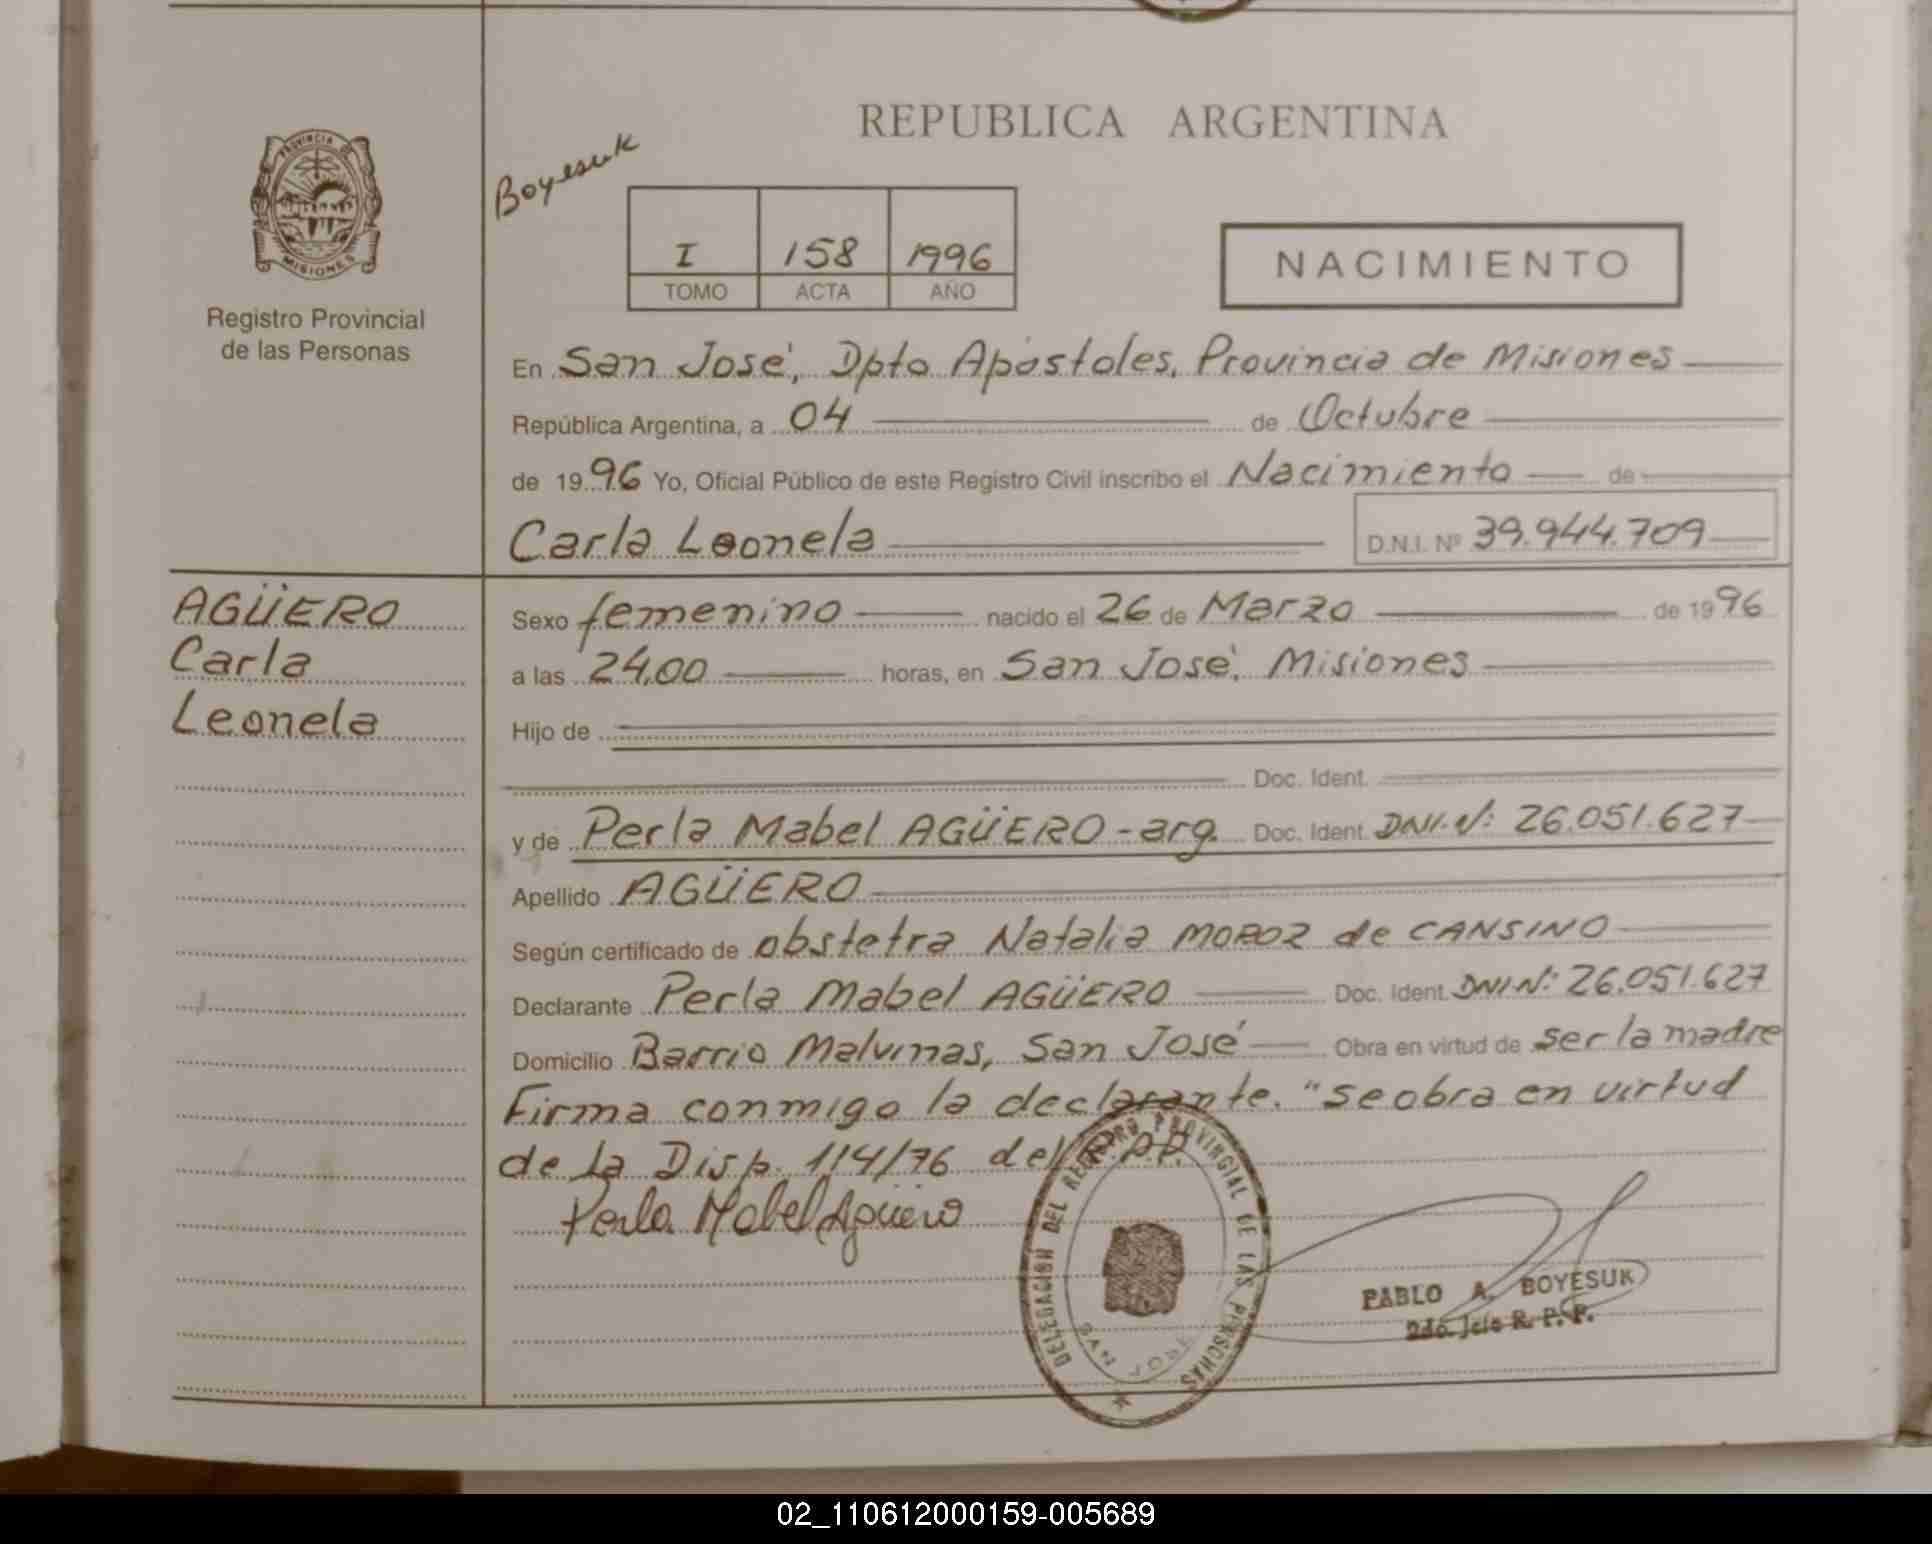 REPUBLICA ARGENTINA
Boyesuk
PROVINCIA DE
MISIONES
Registro Provincial
de las Personas
I 158 1996
TOMO ACTA AÑO
NACIMIENTO
En San José, Dpto Apóstoles, Provincia de Misiones
República Argentina, a 04 de Octubre
de 1996 Yo, Oficial Público de este Registro Civil inscribo el Nacimiento de
Carla Leonela D.N.I. Nº 39.944.709
AGÜERO
Carla
Leonela
Sexo femenino nacido el 26 de Marzo de 1996
a las 24,00 horas, en San José, Misiones
Hijo de
Doc. Ident.
y de Perla Mabel AGÜERO - arg. Doc. Ident. DNI.Nº: 26.051.627
Apellido AGÜERO
Según certificado de obstetra Natalia MOROZ de CANSINO
Declarante Perla Mabel AGÜERO Doc. Ident. DNI Nº: 26.051.627
Domicilio Barrio Malvinas, San José Obra en virtud de ser la madre
Firma conmigo la declarante. "Se obra en virtud
de la Disp. 114/76 del R.P.P.
Perla Mabel Agüero
DELEGACION DEL REGISTRO PROVINCIAL DE LAS PERSONAS
SAN JOSE
PABLO A. BOYESUK
2do. Jefe R. P. P.
02_110612000159-005689